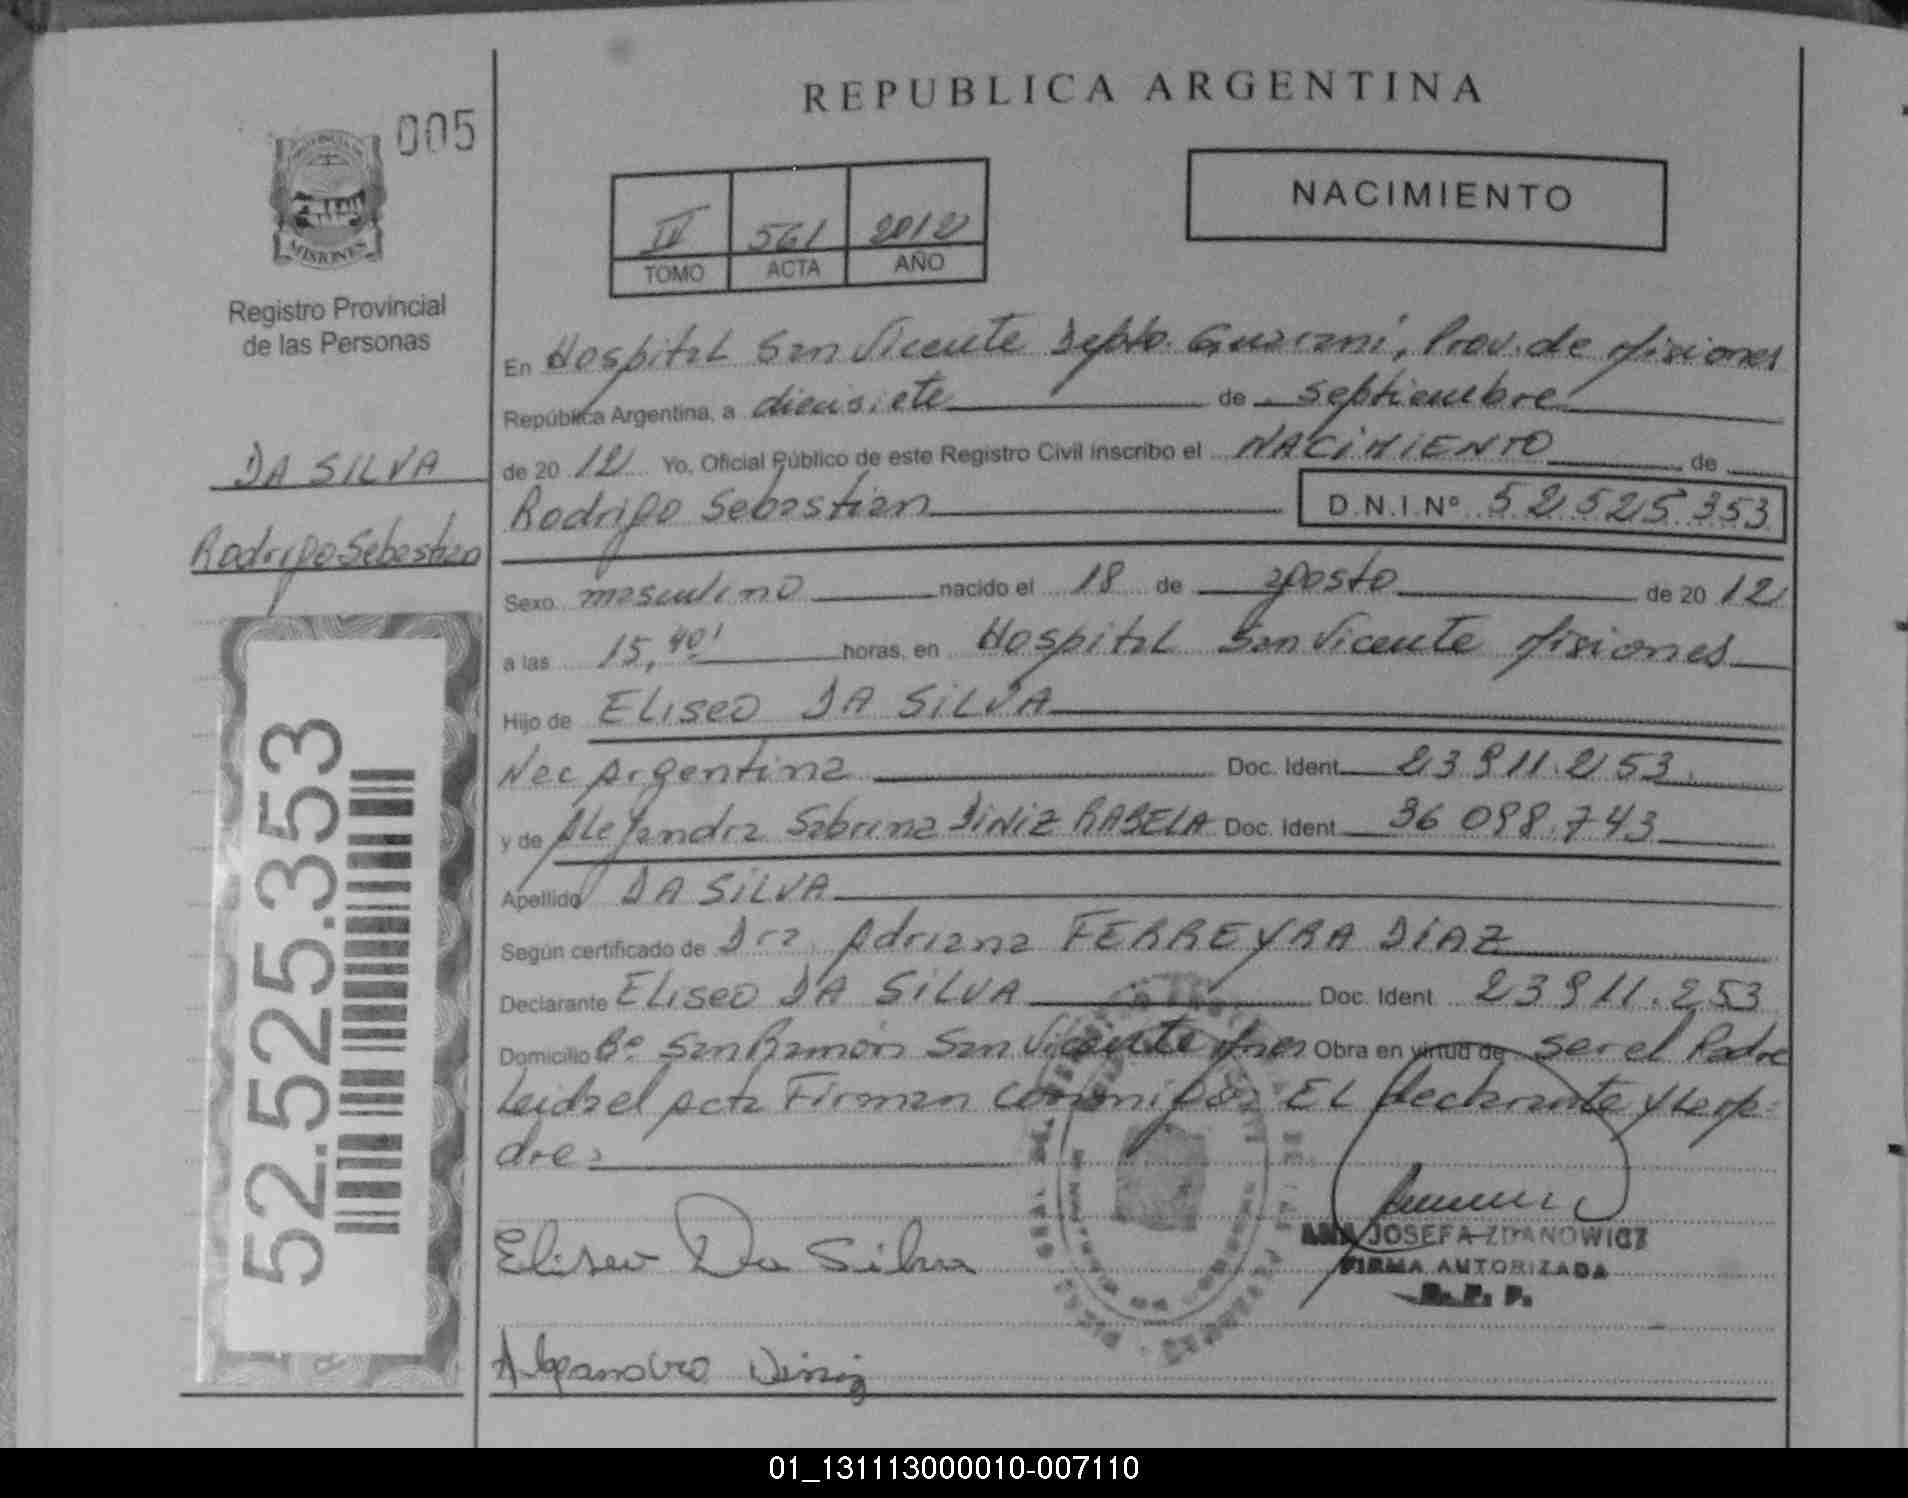 REPUBLICA ARGENTINA
005
NACIMIENTO
IV 561 2012
TOMO ACTA AÑO
MISIONES
Registro Provincial
de las Personas
En Hospital San Vicente Depto. Guarani, Prov. de Misiones
República Argentina, a diecisiete de septiembre
de 20 12 Yo, Oficial Público de este Registro Civil inscribo el NACIMIENTO de
DA SILVA
Rodrigo Sebastian D.N.I.Nº 52 525 353
Rodrigo Sebastian
Sexo masculino nacido el 18 de agosto de 20 12
a las 15,40' horas, en Hospital San Vicente Misiones
Hijo de ELISEO DA SILVA
Nac Argentina Doc. Ident. 23 911.253
y de Alejandra Sabrina DINIZ RABELA Doc. Ident. 36 098.743
Apellido DA SILVA
Según certificado de Dra. Adriana FERREYRA DIAZ
Declarante ELISEO DA SILVA Doc. Ident. 23 911.253
Domicilio Bº San Ramón San Vicente Mnes Obra en virtud de ser el Padre
Leida el acta Firman conmigo EL declarante y la
dre
52.525.353
Eliseo Da Silva
ANA JOSEFA ZDANOWICZ
FIRMA AUTORIZADA
R. P. P.
Diniz
01_131113000010-007110